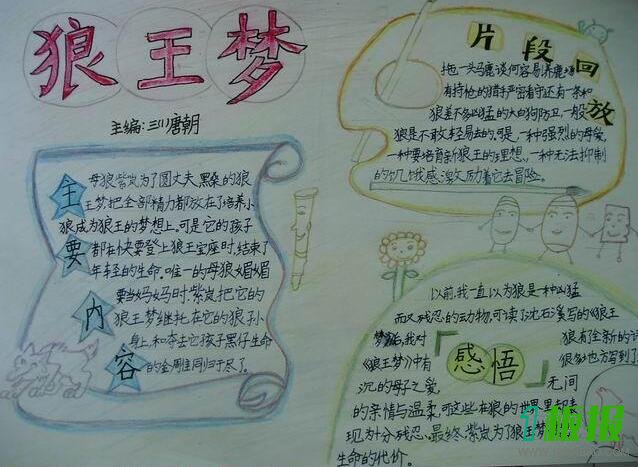 狼王梦
主编:三川唐朝
主要内容
母狼紫岚为了圆丈夫黑桑的狼
王梦把全部精力都放在了培养小
狼成为狼王的梦想上。可是它的孩子
都在快要登上狼王宝座时,结束了
年轻的生命。唯一的母狼媚媚
要当妈妈时,紫岚把它的
狼王梦继托在它的狼小孙
身上,和夺去它孩子黑仔生命
的金雕同归于尽了。
片段回放
拖一头马鹿谈何容易,养鹿场
有持枪的猎手严密看守还有一条和
狼差不多凶猛的大白狗防卫,一般
狼是不敢轻易去的。可是,一种强烈的母爱,
一种要培育新狼王的理想,一种无法抑制
的饥饿感激励着它去冒险。
感悟
以前,我一直以为狼是一种凶猛
而又残忍的动物,可读了沈石溪写的《狼王
梦》后,我对狼有全新的
《狼王梦》中有很多地方写到了
沉的母子之爱,无间
的亲情与温柔,可这些在狼的世界里却表
现为十分残忍,最终,紫岚为了狼王梦
生命的代价。
1板报